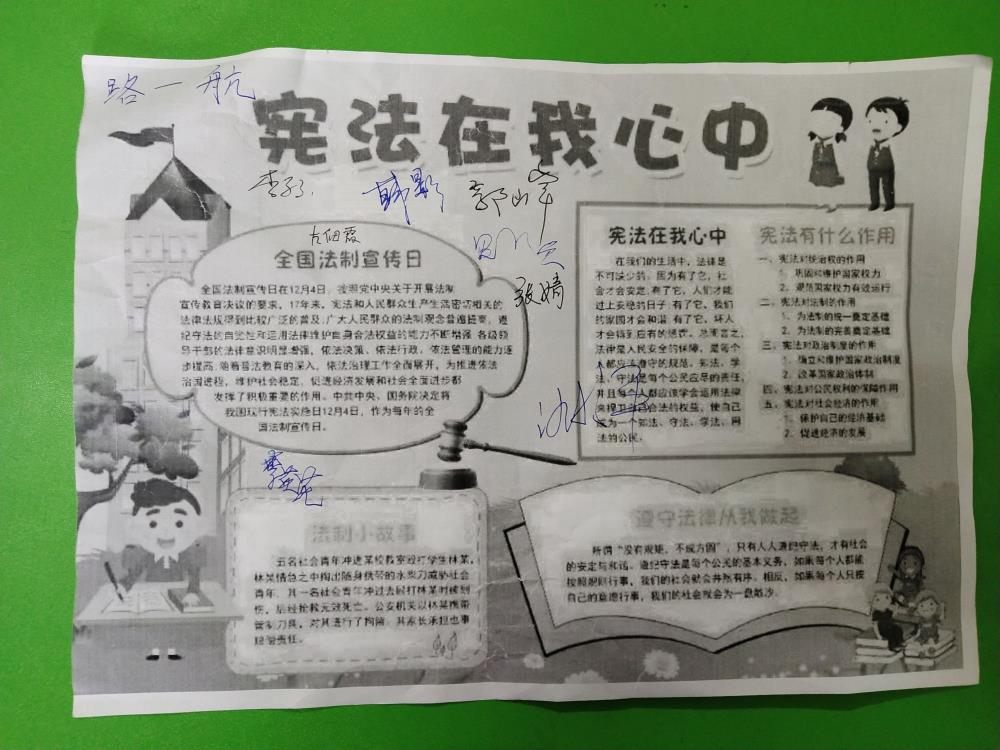 路一航
宪法在我心中
韩影 郭山峰
张婧
全国法制宣传日
全国法制宣传日在12月4日,按照党中央关于开展法制
宣传教育决议的要求,17年来,宪法和人民群众生产生活密切相关的
法律法规得到比较广泛的普及;广大人民群众的法制观念普遍提高,遵
纪守法的自觉性和运用法律维护自身合法权益的能力不断增强 各级领
导干部的法律意识明显增强,依法决策、依法行政,依法管理的能力逐
步提高 随着普法教育的深入,依法治理工作全面展开,为推进依法
治国进程,维护社会稳定,促进经济发展和社会全面进步都
发挥了积极重要的作用。中共中央、国务院决定将
我国现行宪法实施日12月4日,作为每年的全
国法制宣传日。
宪法在我心中
在我们的生活中,法律是
不可缺少的,因为有了它,社
会才会安定,有了它,人们才能
过上安稳的日子 有了它,我们
的家园才会和谐 有了它,坏人
才会得到应有的惩罚。总而言之,
法律是人民安全的保障,是每个
人都应该遵守的规范。知法、学
法、守法是每个公民应尽的责任,
并且每个人都应该学会运用法律
来捍卫自己合法的权益,使自己
成为一个知法、守法、学法、用
法的公民。
宪法有什么作用
一、宪法对统治权的作用
1、巩固和维护国家权力
2、规范国家权力有效运行
二、宪法对法制的作用
1、为法制的统一奠定基础
2、为法制的完善奠定基础
三、宪法对政治制度的作用
1、确立和维护国家政治制度
2、改革国家政治体制
四、宪法对公民权利的保障作用
五、宪法对社会经济的作用
1、保护自己的经济基础
2、促进经济的发展
法制小故事
五名社会青年冲进某校教室殴打学生林某,
林某情急之中掏出随身携带的水果刀威胁社会
青年,其一名社会青年冲过去殴打林某时被刺
伤,后经抢救无效死亡。公安机关以林某携带
管制刀具,对其进行了拘留,其家长承担也事
赔偿责任。
遵守法律从我做起
所谓“没有规矩,不成方圆”,只有人人遵纪守法,才有社会
的安定与和谐。遵纪守法是每个公民的基本义务,如果每个人都能
按照规则行事,我们的社会就会井然有序。相反,如果每个人只按
自己的意愿行事,我们的社会就会为一盘散沙。